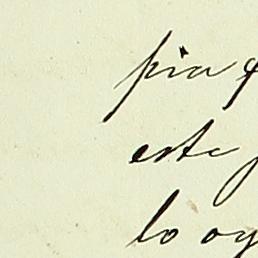 pia
este
lo